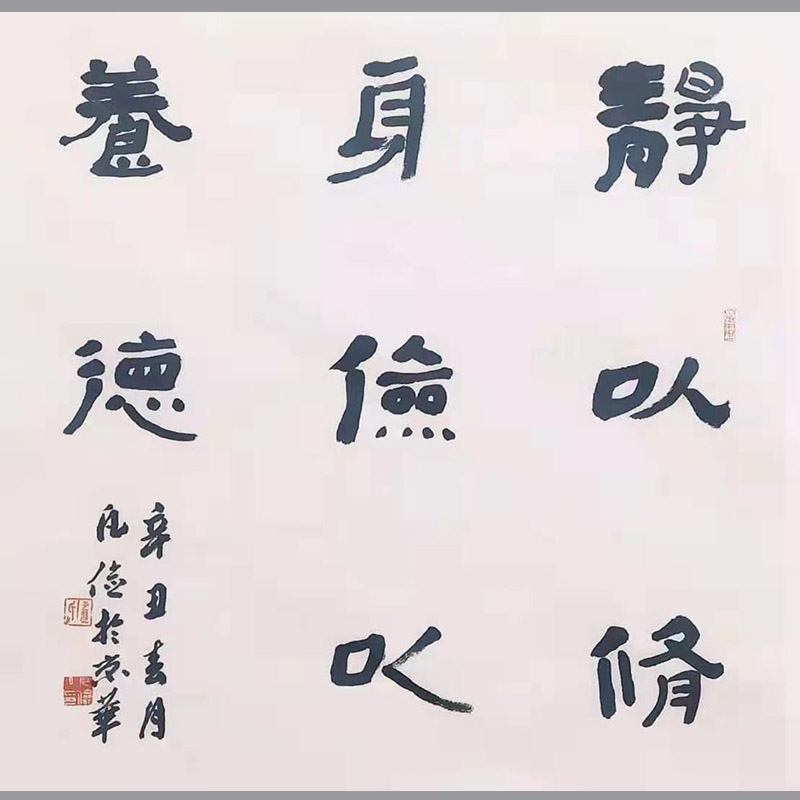 靜以脩
身儉以
養德
辛丑春月
凡儉於京華